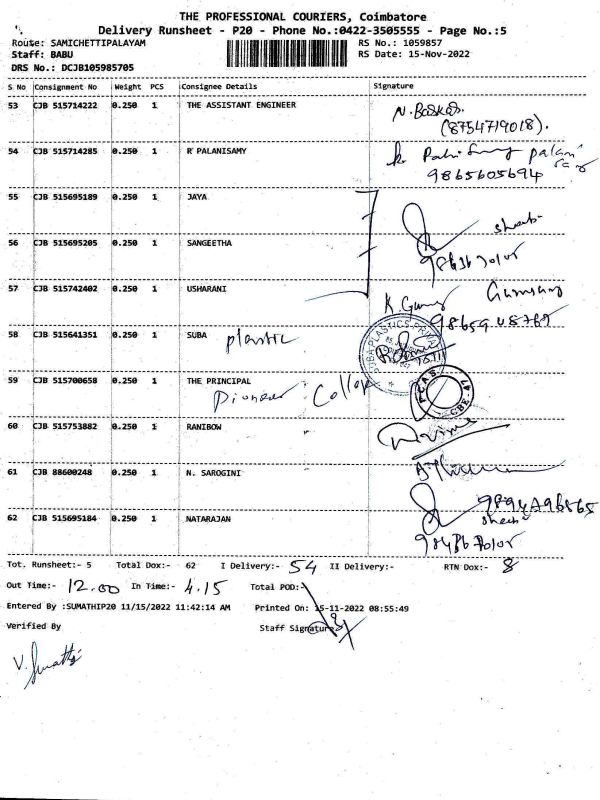 THE PROFESSIONAL COURIERS, Coimbatore
Delivery Runsheet - P20 - Phone No.:0422-3505555 - Page No.:5
Route: SAMICHETTIPALAYAM RS No.: 1059857
Staff: BABU RS Date: 15-Nov-2022
DRS No.: DCJB105985705
S No Consignment No Weight PCS Consignee Details Signature
53 CJB 515714222 0.250 1 THE ASSISTANT ENGINEER N. Baskar
(8754719018).
54 CJB 515714285 0.250 1 R PALANISAMY
9865605694
55 CJB 515695189 0.250 1 JAYA
56 CJB 515695205 0.250 1 SANGEETHA
57 CJB 515742402 0.250 1 USHARANI
58 CJB 515641351 0.250 1 SUBA plastic
59 CJB 515700658 0.250 1 THE PRINCIPAL Pioneer College
60 CJB 515753882 0.250 1 RANIBOW
61 CJB 88600248 0.250 1 N. SAROGINI
62 CJB 515695184 0.250 1 NATARAJAN
Tot. Runsheet:- 5 Total Dox:- 62 I Delivery:- 54 II Delivery:- RTN Dox:- 8
Out Time:- 12.00 In Time:- 4.15 Total POD:-
Entered By :SUMATHIP20 11/15/2022 11:42:14 AM Printed On: 15-11-2022 08:55:49
Verified By Staff Signature
V. Sumathi